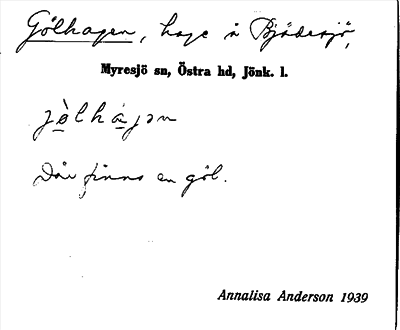 Gölhagen, hage å Bjädesjö,
Myresjö sn, Östra hd, Jönk. l.
jölhágən
Där finns en göl.
Annalisa Anderson 1939